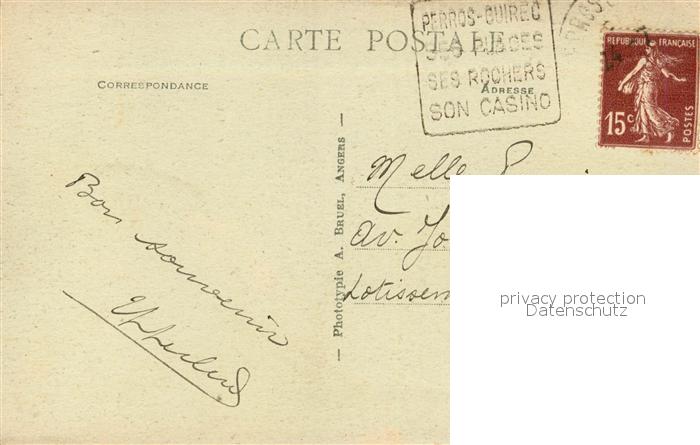 CARTE POSTALE
PERROS-GUIREC
SES PLAGES
SES ROCHERS
SON CASINO
REPUBLIQUE FRANÇAISE
15c
POSTES
CORRESPONDANCE
ADRESSE
Bon souvenir
— Phototypie A. BRUEL, ANGERS —
Melle
Av. Jo
Lotissem
privacy protection
Datenschutz